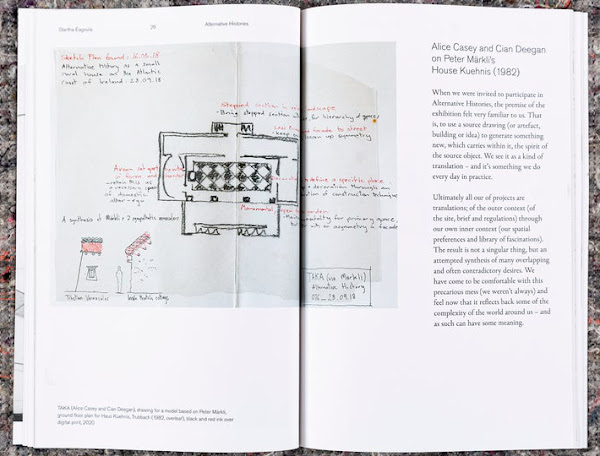 Stertha Esguira
26
Alternative Histories
Sketch Plan found: 16.09.18
Alternative History as a small
rural house on the Atlantic
coast of Ireland 23.09.18
Stepped section in relandscape
- Bring stepped section allows for hierarchy of spaces
facade to street
symmetry
- retain this as
a necessary space
of domestic
alter-ego
define a specific place
decoration through an
of construction technique
garden
for primary space,
of asymmetry in facade
A synthesis of Märkli's 2 sympathetic vernaculars
Tibetan Vernacular
Irish thatch cottage
TAKA (via Märkli)
Alternative History
016_23.09.18
TAKA (Alice Casey and Cian Deegan), drawing for a model based on Peter Märkli,
ground floor plan for Haus Kuehnis, Trübbach (1982, overleaf), black and red ink over
digital print, 2020
Alice Casey and Cian Deegan
on Peter Märkli's
House Kuehnis (1982)
When we were invited to participate in
Alternative Histories, the premise of the
exhibition felt very familiar to us. That
is, to use a source drawing (or artefact,
building or idea) to generate something
new, which carries within it, the spirit of
the source object. We see it as a kind of
translation – and it's something we do
every day in practice.
Ultimately all our of projects are
translations; of the outer context (of
the site, brief and regulations) through
our own inner context (our spatial
preferences and library of fascinations).
The result is not a singular thing, but an
attempted synthesis of many overlapping
and often contradictory desires. We
have come to be comfortable with this
precarious mess (we weren't always) and
feel now that it reflects back some of the
complexity of the world around us – and
as such can have some meaning.